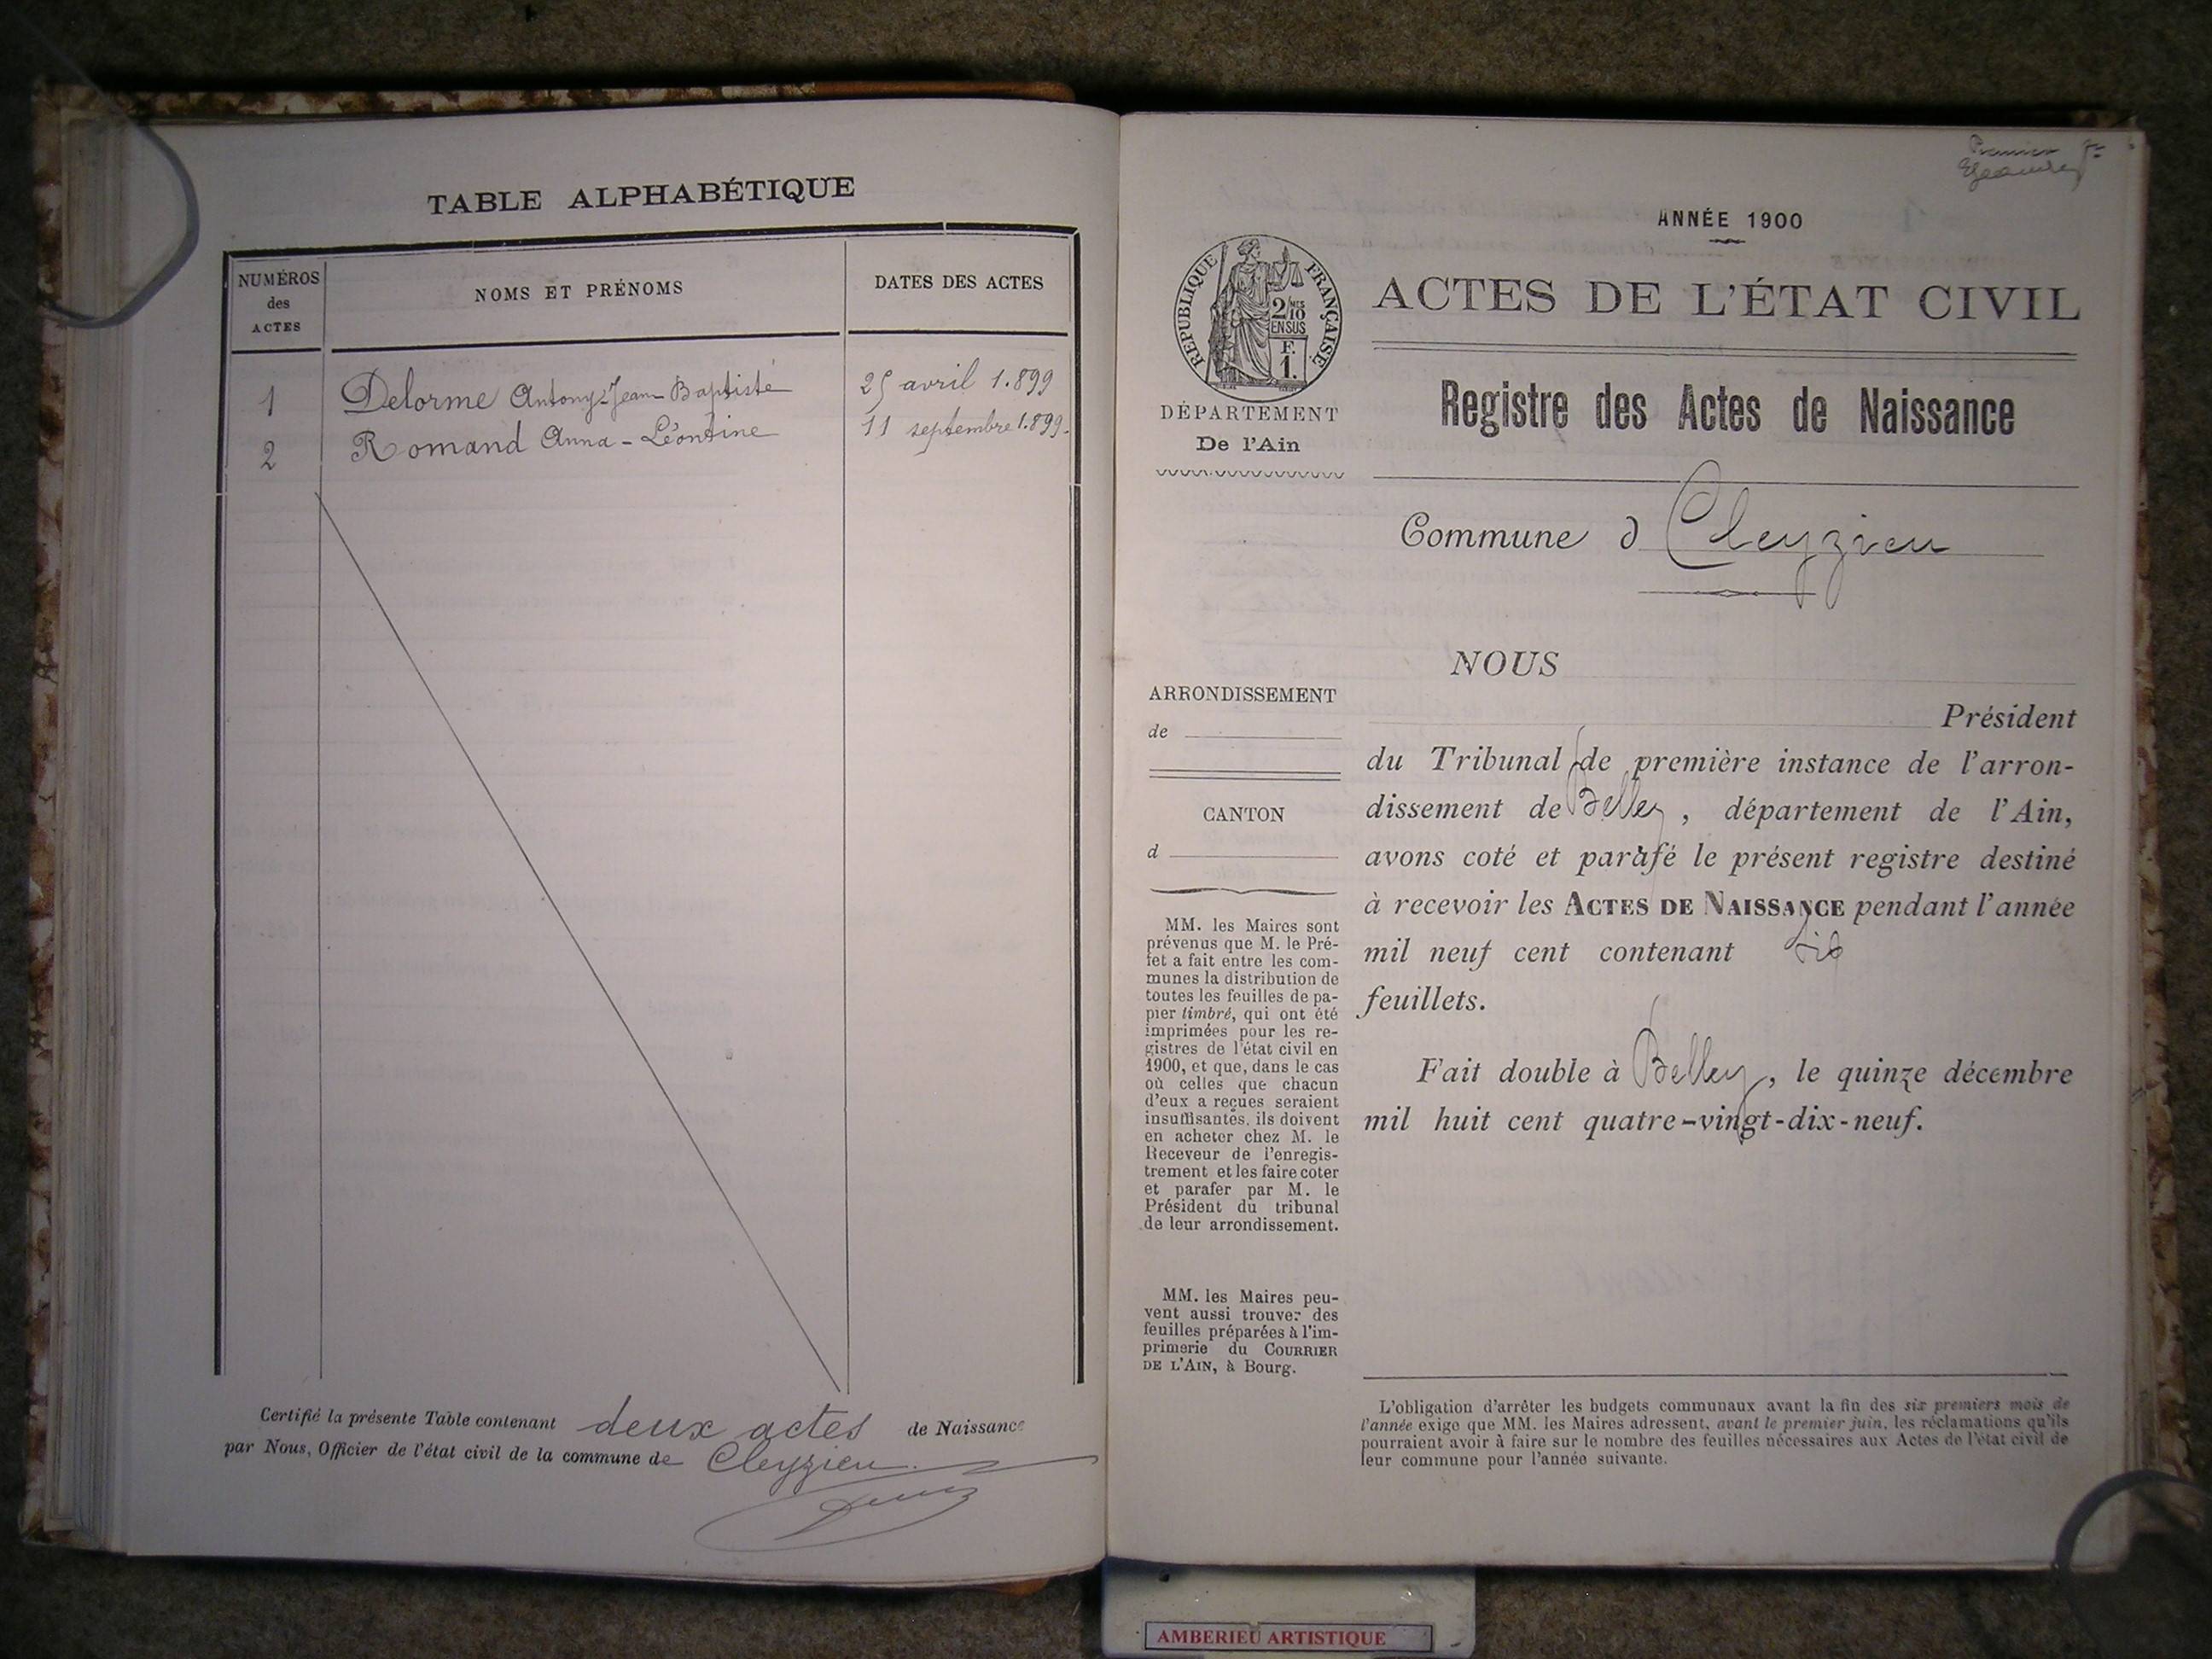 TABLE ALPHABÉTIQUE
NUMÉROS
des
ACTES
NOMS ET PRÉNOMS
DATES DES ACTES
1 Delorme Antony-Jean-Baptiste 25 avril 1.899
2 Romand Anna-Léontine 11 septembre 1.899.
Certifié la présente Table contenant deux actes de Naissance
par Nous, Officier de l'état civil de la commune de Cleyzieu
Premier
ANNÉE 1900
RÉPUBLIQUE FRANÇAISE
2/10 MES
EN SUS
F.
1.
ACTES DE L'ÉTAT CIVIL
DÉPARTEMENT
De l'Ain
Registre des Actes de Naissance
Commune d Cleyzieu
ARRONDISSEMENT
de
CANTON
d
MM. les Maires sont
prévenus que M. le Pré-
fet a fait entre les com-
munes la distribution de
toutes les feuilles de pa-
pier timbré, qui ont été
imprimées pour les re-
gistres de l'état civil en
1900, et que, dans le cas
où celles que chacun
d'eux a reçues seraient
insuffisantes, ils doivent
en acheter chez M. le
Receveur de l'enregis-
trement et les faire coter
et parafer par M. le
Président du tribunal
de leur arrondissement.
MM. les Maires peu-
vent aussi trouver des
feuilles préparées à l'im-
primerie du COURRIER
DE L'AIN, à Bourg.
NOUS
Président
du Tribunal de première instance de l'arron-
dissement de Belley, département de l'Ain,
avons coté et parafé le présent registre destiné
à recevoir les ACTES DE NAISSANCE pendant l'année
mil neuf cent contenant six
feuillets.
Fait double à Belley, le quinze décembre
mil huit cent quatre-vingt-dix-neuf.
L'obligation d'arrêter les budgets communaux avant la fin des six premiers mois de
l'année exige que MM. les Maires adressent, avant le premier juin, les réclamations qu'ils
pourraient avoir à faire sur le nombre des feuilles nécessaires aux Actes de l'état civil de
leur commune pour l'année suivante.
AMBERIEU ARTISTIQUE